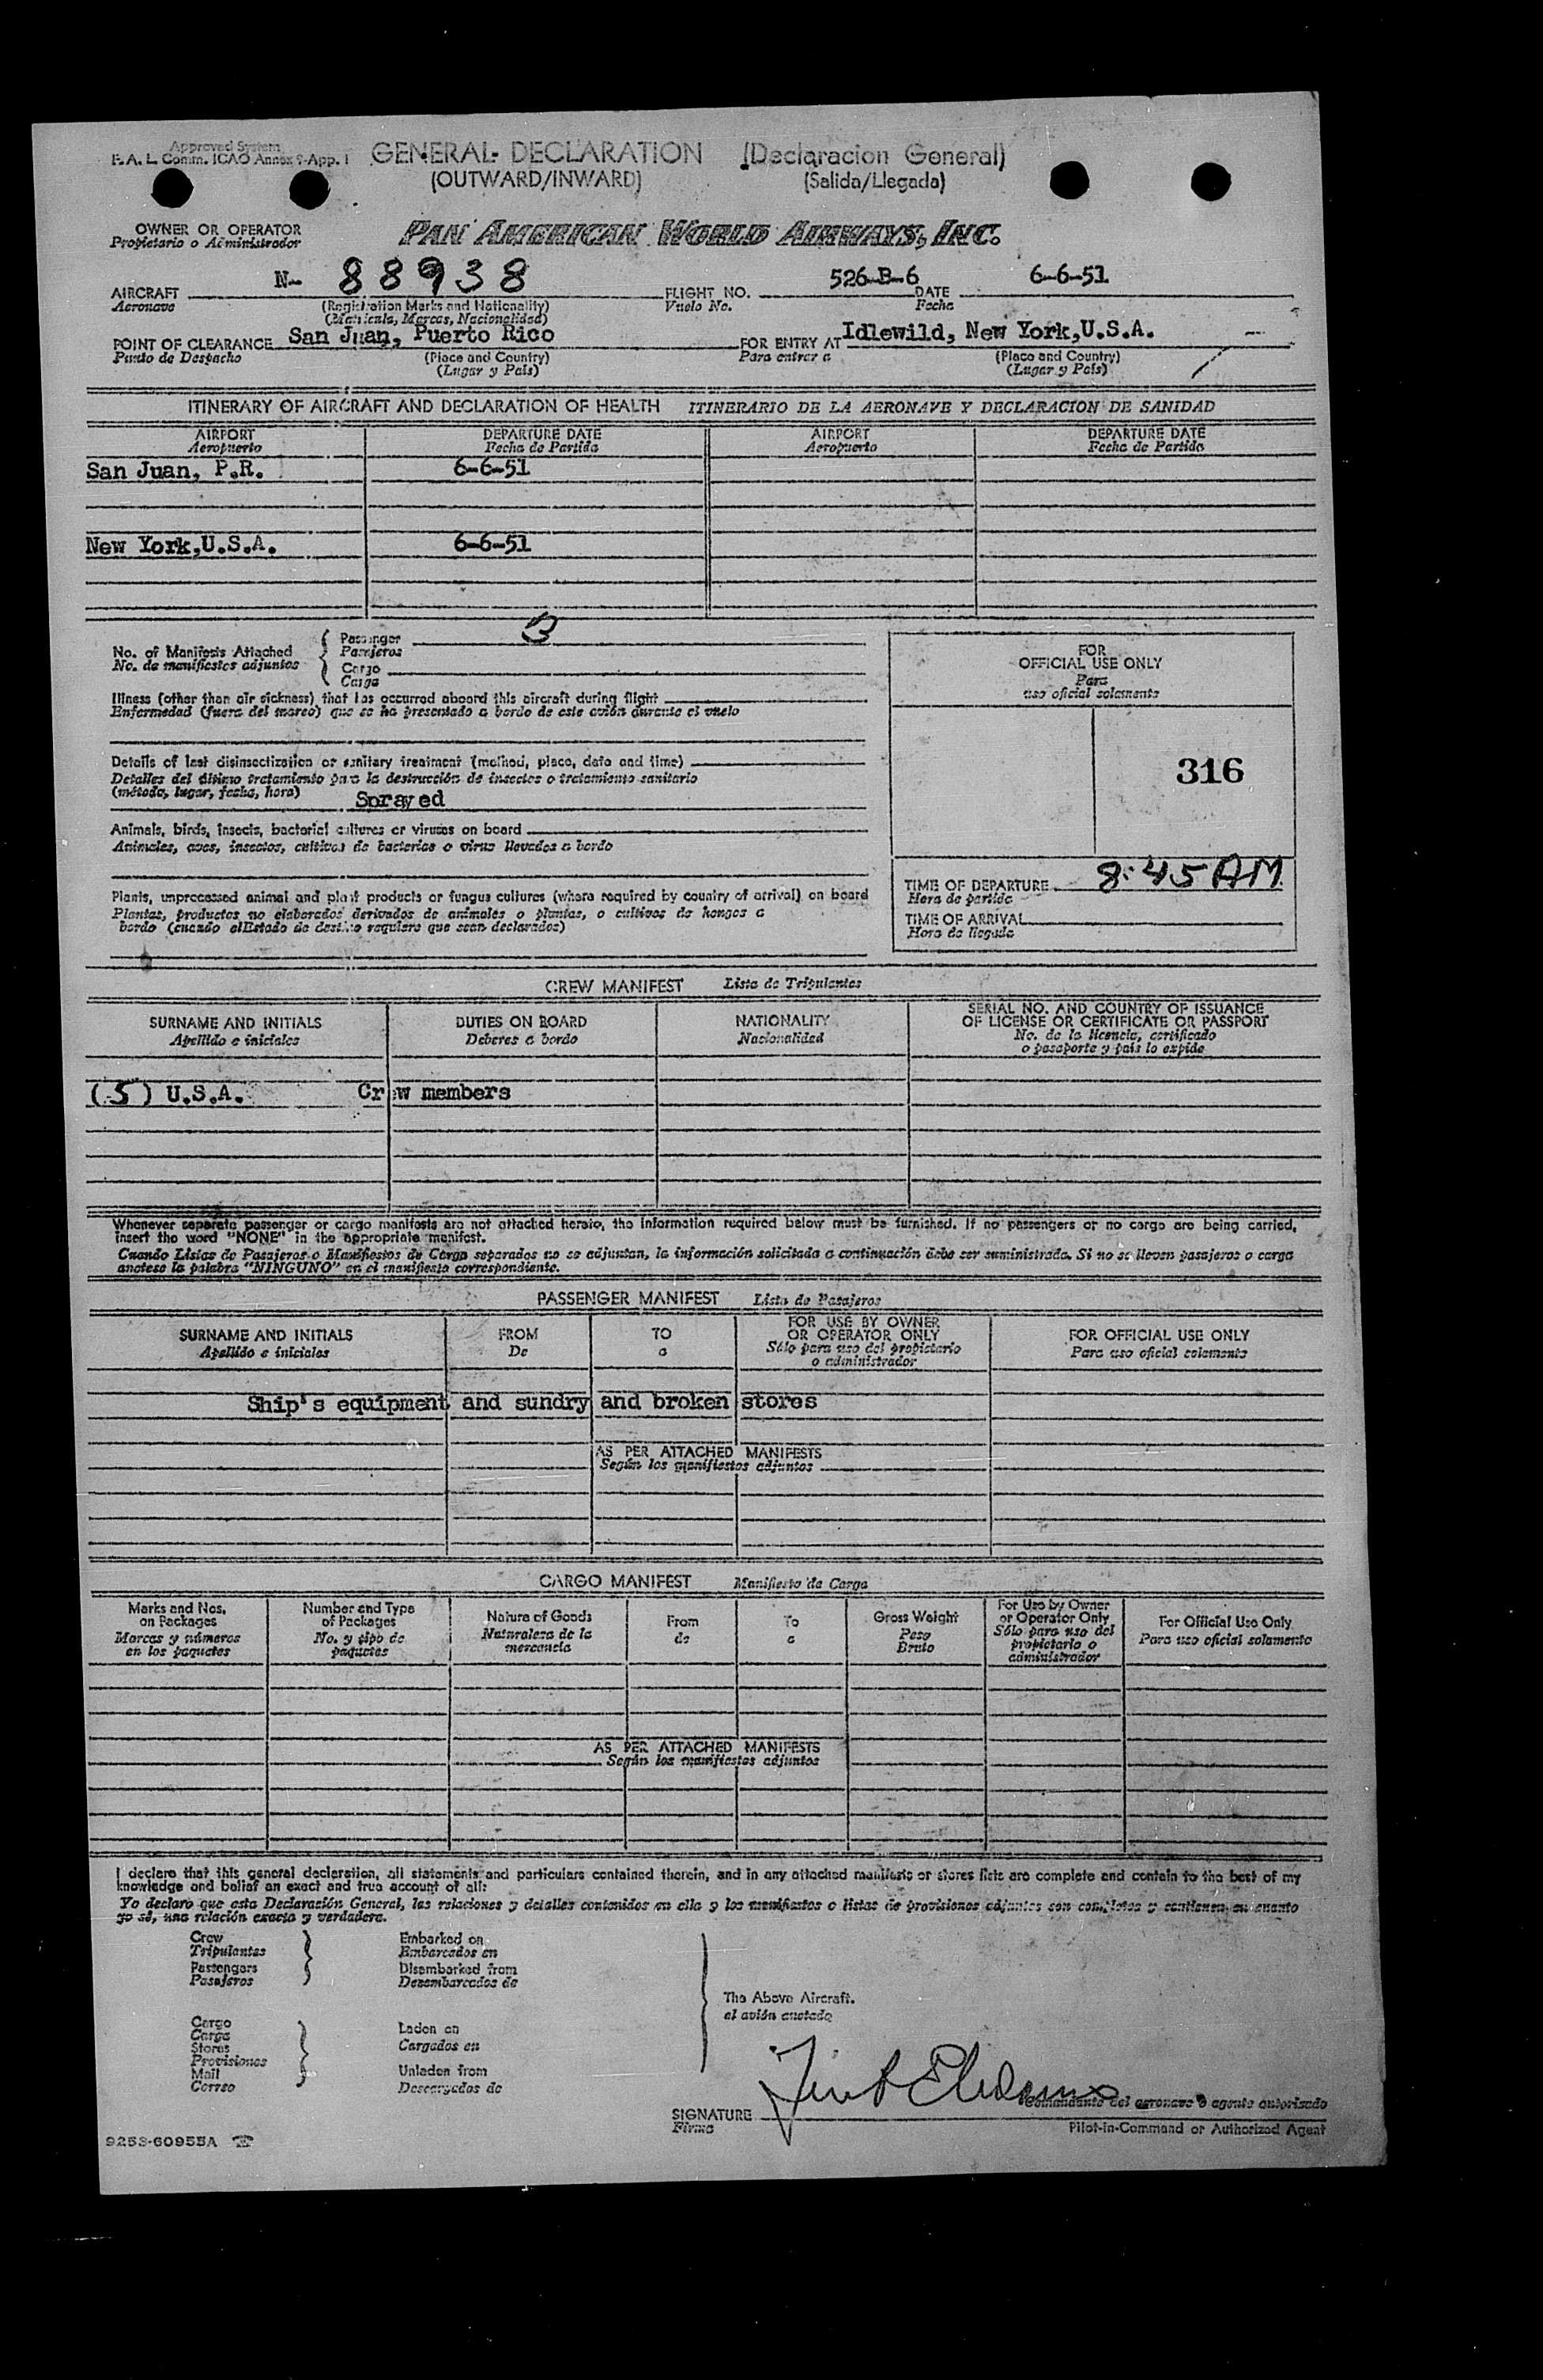 Approved System
F. A. L. Comm. ICAO Annex 9-App. 1
GENERAL DECLARATION (Declaracion General)
(OUTWARD/INWARD) (Salida/Llegada)
OWNER OR OPERATOR
Propietario o Administrador
PAN AMERICAN WORLD AIRWAYS, INC.
AIRCRAFT N- 88938 FLIGHT NO. 526-B-6 DATE 6-6-51
Aeronave (Registration Marks and Nationality) Vuelo No. Fecha
(Matricula, Marcas, Nacionalidad)
POINT OF CLEARANCE San Juan, Puerto Rico FOR ENTRY AT Idlewild, New York,U.S.A.
Punto de Despacho (Place and Country) Para entrar a (Place and Country)
(Lugar y País) (Lugar y País)
ITINERARY OF AIRCRAFT AND DECLARATION OF HEALTH ITINERARIO DE LA AERONAVE Y DECLARACION DE SANIDAD
AIRPORT DEPARTURE DATE AIRPORT DEPARTURE DATE
Aeropuerto Fecha de Partida Aeropuerto Fecha de Partida
San Juan, P.R. 6-6-51
New York,U.S.A. 6-6-51
No. of Manifests Attached
No. de manifiestos adjuntos
Passenger 3
Pasajeros
Cargo
Carga
Illness (other than air sickness) that has occurred aboard this aircraft during flight
Enfermedad (fuera del mareo) que se ha presentado a bordo de este avión durante el vuelo
Details of last disinsectization or sanitary treatment (method, place, date and time)
Detalles del último tratamiento para la destrucción de insectos o tratamiento sanitario
(método, lugar, fecha, hora) Sprayed
Animals, birds, insects, bacterial cultures or viruses on board
Animales, aves, insectos, cultivos de bacterias o virus llevados a bordo
Plants, unprocessed animal and plant products or fungus cultures (where required by country of arrival) on board
Plantas, productos no elaborados derivados de animales o plantas, o cultivos de hongos a
bordo (cuando elEstado de destino requiere que sean declarados)
FOR
OFFICIAL USE ONLY
Para
uso oficial solamente
316
TIME OF DEPARTURE 8:45 AM
Hora de partida
TIME OF ARRIVAL
Hora de llegada
CREW MANIFEST Lista de Tripulantes
SURNAME AND INITIALS DUTIES ON BOARD NATIONALITY SERIAL NO. AND COUNTRY OF ISSUANCE
OF LICENSE OR CERTIFICATE OR PASSPORT
Apellido e iniciales Deberes a bordo Nacionalidad No. de la licencia, certificado
o pasaporte y país lo expide
(5) U.S.A. Crew members
Whenever separate passenger or cargo manifests are not attached hereto, the information required below must be furnished. If no passengers or no cargo are being carried,
insert the word "NONE" in the appropriate manifest.
Cuando Listas de Pasajeros o Manifiestos de Carga separados no se adjuntan, la información solicitada a continuación debe ser suministrada. Si no se lleven pasajeros o carga
anotese la palabra "NINGUNO" en el manifiesto correspondiente.
PASSENGER MANIFEST Lista de Pasajeros
SURNAME AND INITIALS FROM TO FOR USE BY OWNER
OR OPERATOR ONLY FOR OFFICIAL USE ONLY
Apellido e iniciales De a Sólo para uso del propietario
o administrador Para uso oficial solamente
Ship's equipment and sundry and broken stores
AS PER ATTACHED MANIFESTS
Según los manifiestos adjuntos
CARGO MANIFEST Manifiesto de Carga
Marks and Nos.
on Packages
Marcas y números
en los paquetes
Number and Type
of Packages
No. y tipo de
paquetes
Nature of Goods
Naturaleza de la
mercancia
From
de
To
a
Gross Weight
Peso
Bruto
For Use by Owner
or Operator Only
Sólo para uso del
propietario o
administrador
For Official Use Only
Para uso oficial solamente
AS PER ATTACHED MANIFESTS
Según los manifiestos adjuntos
I declare that this general declaration, all statements and particulars contained therein, and in any attached manifests or stores lists are complete and contain to the best of my
knowledge and belief an exact and true account of all:
Yo declaro que esta Declaración General, las relaciones y detalles contenidos en ella y los manifiestos o listas de provisiones adjuntas son completos y contienen en cuanto
yo sé, una relación exacta y verdadera.
Crew
Tripulantes
Passengers
Pasajeros
Embarked on
Embarcados en
Disembarked from
Desembarcados de
The Above Aircraft.
el avión anotado
Cargo
Carga
Stores
Provisiones
Mail
Correo
Laden on
Cargados en
Unladen from
Descargados de
SIGNATURE
Firma
Comandante del aeronave o agente autorizado
Pilot-in-Command or Authorized Agent
9253-60955A